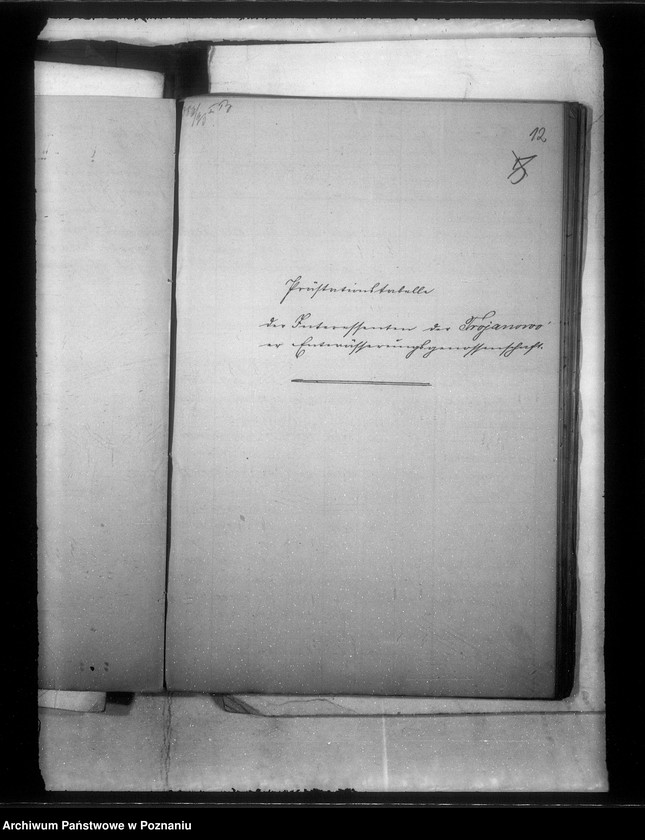 12
Prästationstabelle
der Interessenten der Trojanowo'
er Entwässerungsgenossenschaft.
Archiwum Państwowe w Poznaniu